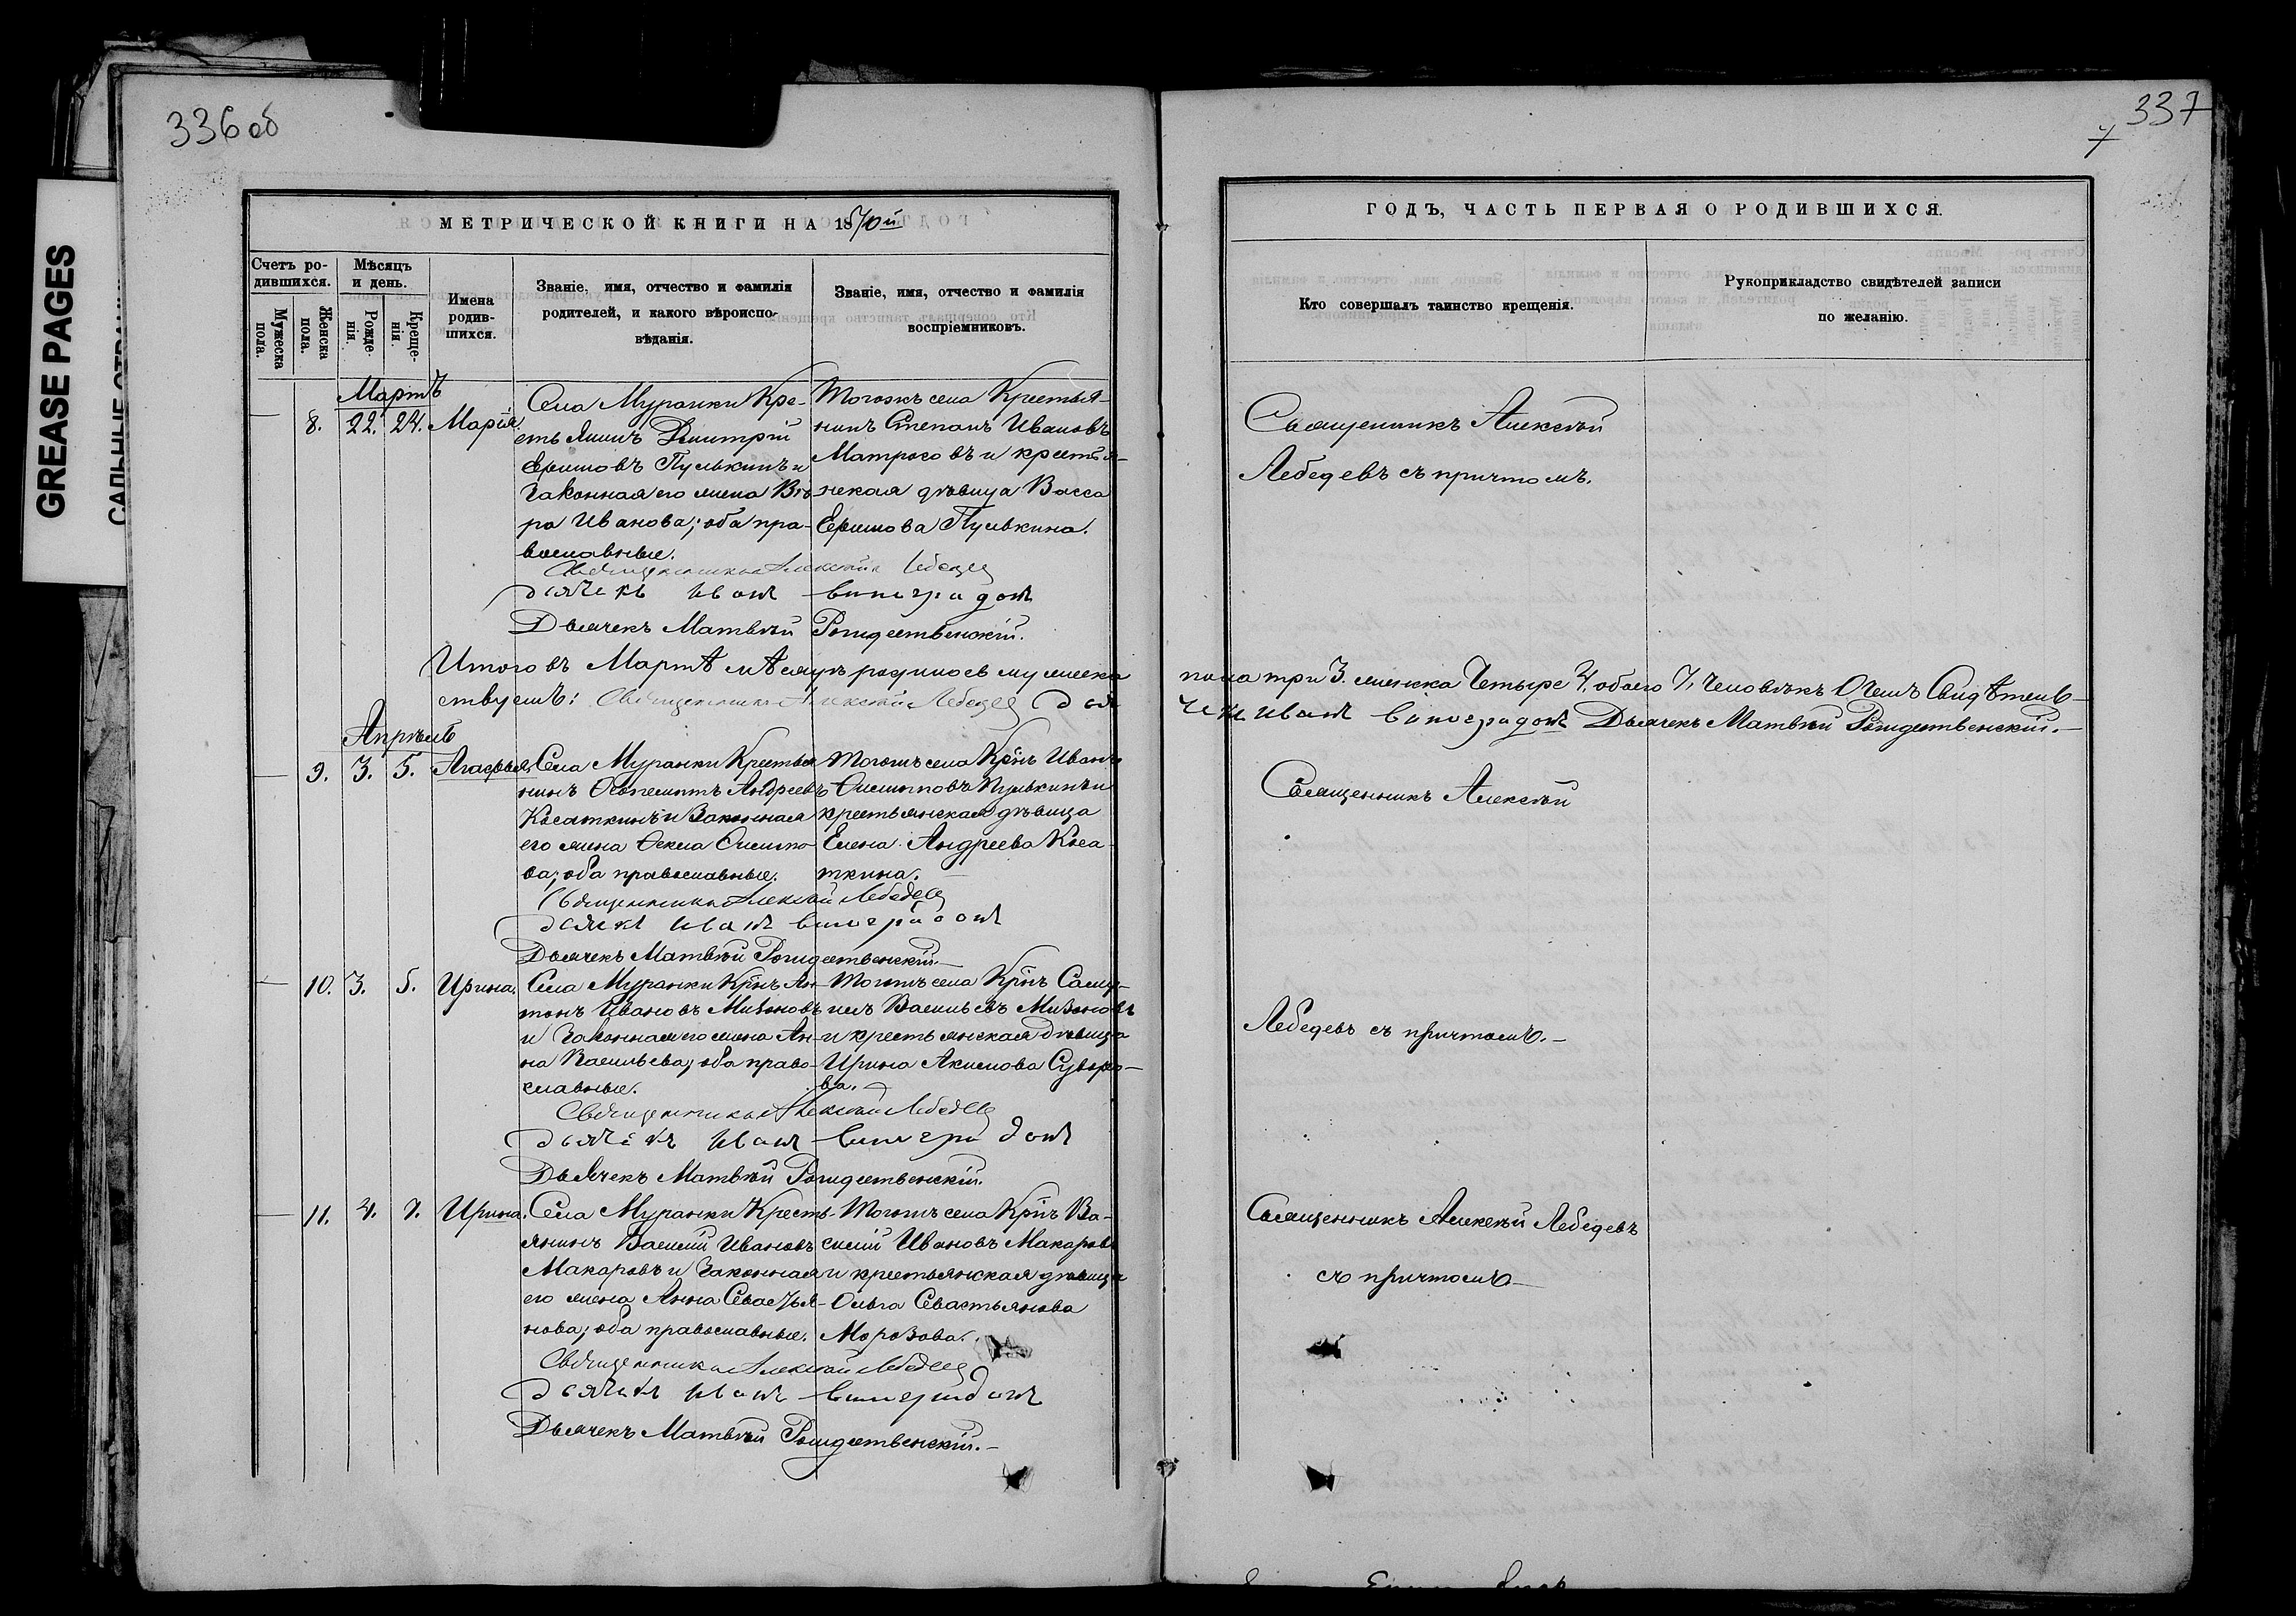 336 об
337
7
GREASE PAGES
МЕТРИЧЕСКОЙ КНИГИ НА 1870й
ГОДЪ, ЧАСТЬ ПЕРВАЯ О РОДИВШИХСЯ.
Счетъ ро-
дившихся.
Мужеска пола.
Женска пола.
Мѣсяцъ
и день.
Рожде-
нія.
Креще-
нія.
Имена
родив-
шихся.
Званіе, имя, отчество и фамилія
родителей, и какого вѣроиспо-
вѣданія.
Званіе, имя, отчество и фамилія
воспріемниковъ.
Кто совершалъ таинство крещенія.
Рукоприкладство свидѣтелей записи
по желанію.
Мартъ
8. 22. 24. Марія.
Села Муранки Кре-
стьянинъ Дмитрій
Ефимовъ Пулькинъ и
Законная его жена Вѣ
ра Иванова; оба пра-
вославные.
Тогожъ села Крестья-
нинъ Степанъ Ивановъ
Матросовъ и крестья-
нская дѣвица Васса
Ефимова Пулькина.
Священникъ Алексѣй
Лебедевъ съ причтомъ.
Священникъ Алексѣй Лебедев
дьячекъ Иванъ виноградовъ
Дьячекъ Матвѣй Рождественскій.
Итого въ Мартѣ мѣсяцѣ родилось мужеска
пола три 3. женска Четыре 4. обоего 7, Человѣкъ О чемъ Свидѣтель-
ствуемъ: Священникъ Алексѣй Лебедев Дья
чекъ Иванъ виноградовъ Дьячекъ Матвѣй Рождественскій.—
Апрѣль
9. 3. 5. Агафья.
Села Муранки Крестья
нинъ Андреевъ
Касаткинъ и Законная
его жена Фекла Осипо-
ва; оба православные.
Тогожъ села Крнъ Иванъ
Осиповъ Пулькинъ и
крестьянская дѣвица
Елена Андреева Каса-
ткина.
Священникъ Алексѣй
Священникъ Алексѣй Лебедев
дьячекъ Иванъ виноградовъ
Дьячекъ Матвѣй Рождественскій.—
10. 3. 5. Ирина.
Села Муранки Крнъ Ан-
тонъ Ивановъ Мизоновъ
и Законная его жена Ан-
на Васильева; оба право-
славные.
Тогожъ села Крнъ Саму-
илъ Васильевъ Мизоновъ
и крестьянская дѣвица
Ирина Акимова Суворо-
ва.
Лебедевъ съ причтомъ.—
Священникъ Алексѣй Лебедев
дьячекъ Иванъ виноградовъ
Дьячекъ Матвѣй Рождественскій.
11. 4. 7. Ирина.
Села Муранки Кресть-
янинъ Василій Ивановъ
Макаровъ и Законная
его жена Анна Севастья-
нова; оба православные.
Тогожъ села Крнъ Ва-
силій Ивановъ Макаровъ
и крестьянская дѣвица
Ольга Севастьянова
Морозова.
Священникъ Алексѣй Лебедевъ
съ причтомъ—
Священникъ Алексѣй Лебедев
дьячекъ Иванъ виноградовъ
Дьячекъ Матвѣй Рождественскій.—